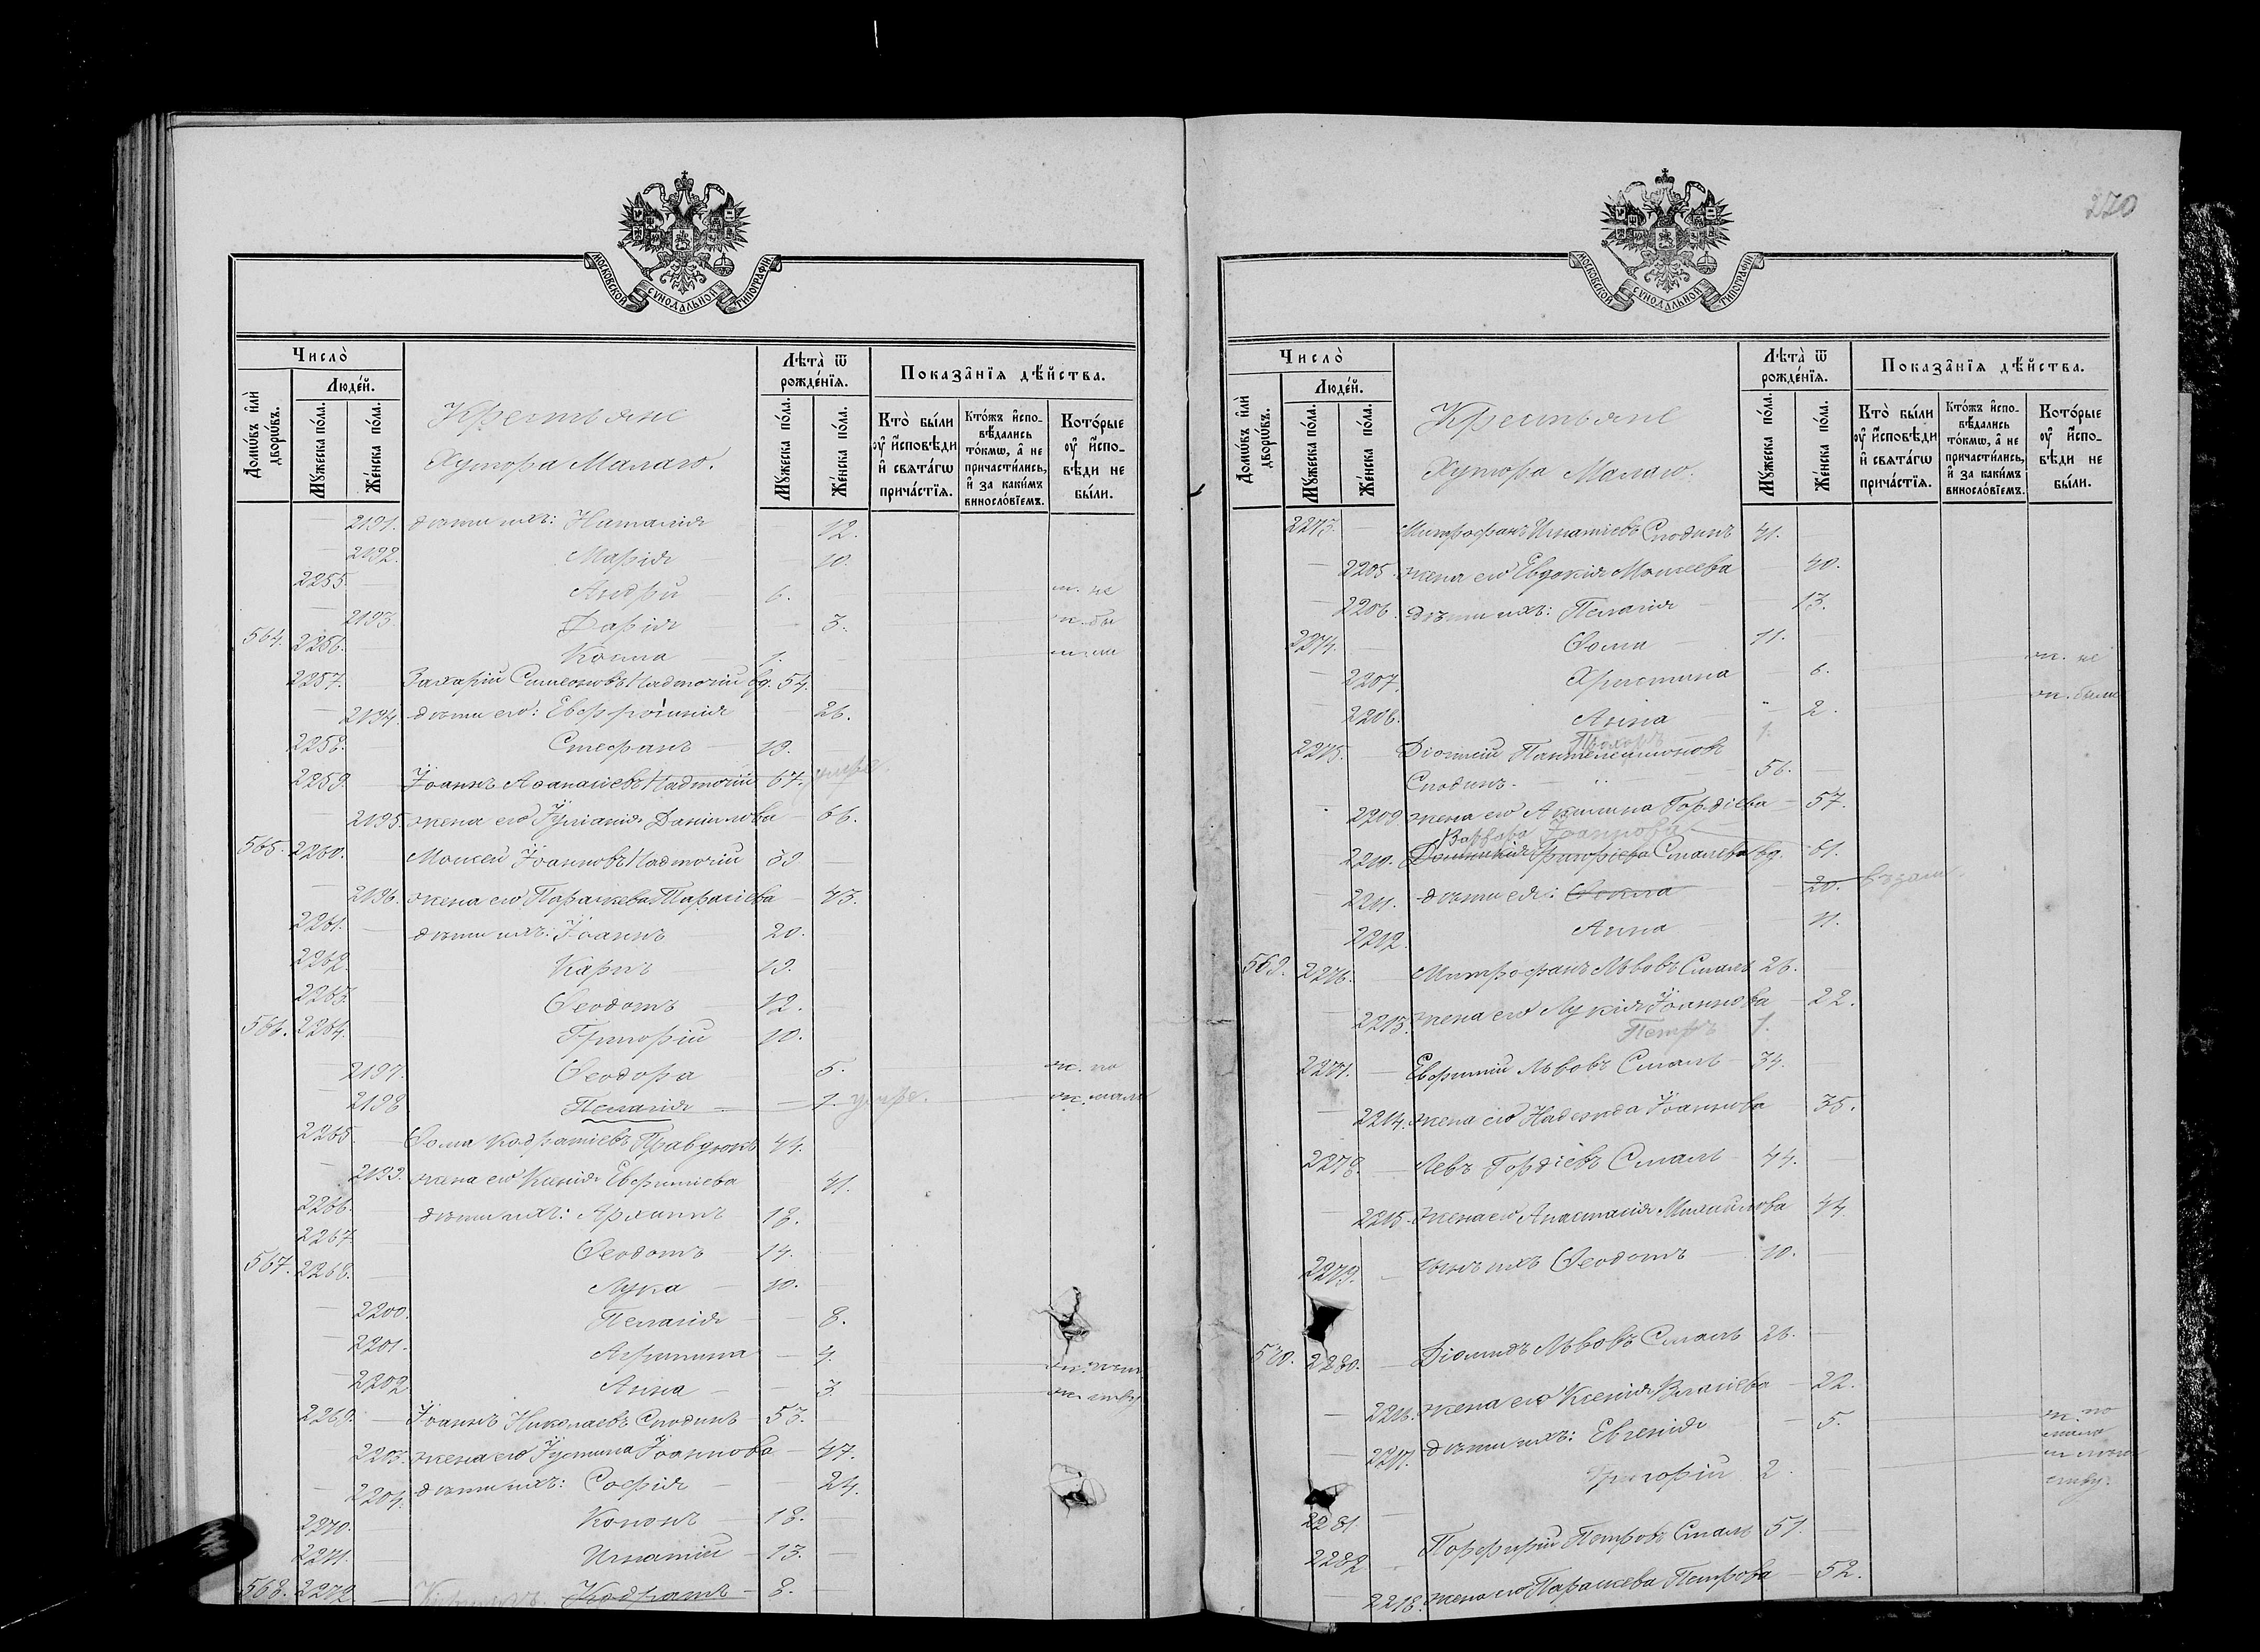 МОСКОВСКОЙ СУНОДАЛЬНОЙ ТИПОГРАФІИ
Число̀
Домѡ́въ и҆лѝ дворѡ́въ.
Люде́й.
Мꙋ́жеска по́ла.
Же́нска по́ла.
Крестьяне
Хутора Малаго.
Лѣта̀ ѿ рожде́нїѧ.
Мꙋ́жеска по́ла.
Же́нска по́ла.
Показа̑нїѧ дѣ́йства.
Кто̀ бы́ли ᲂу҆ и҆́сповѣди и҆ свѧта́гѡ прича́стїѧ.
Кто́жъ и҆спо-вѣ́дались то́кмѡ, а҆ не причасти́лись, и҆ за каки́мъ виносло́вїемъ.
Кото́рые ᲂу҆ и҆́спо-вѣди не бы́ли.
2191. дѣти ихъ: Наталія 12.
2192. Марія 10.
2255. Андрей 6. не
2193. Дарія 3. бы
564. 2256. Косма 1. ли
2257. Захарій Симеоновъ Надточій вд. 54.
2194. дѣти его: Евфросинія 26.
2258. Стефанъ 19.
2259. Іоаннъ Аѳанасіевъ Надточій 67. умре.
2195. жена его Іуліанія Даніилова 66.
565. 2260. Моисей Іоанновъ Надточій 39
2196. жена его Параскева Тарасіева 43.
2261. дѣти ихъ: Іоаннъ 20.
2262. Карпъ 19.
2263. Ѳеодотъ 12.
566. 2264. Григорій 10.
2197. Ѳеодора 5. по
2198 Пелагія 1. умре. мало
2265. Ѳома Кодратіевъ Правдюкъ 44.
2199. жена его Ксенія Евфиміева 41.
2266. дѣти ихъ: Архиппъ 18.
2267 Ѳеодотъ 14.
567. 2268. Лука 10.
2200. Пелагія 8.
2201. Агрипина 4.
2202 Анна 3
2269. Іоаннъ Николаевъ Сподинъ 53.
2203. жена его Іустина Іоаннова 47.
2204. дѣти ихъ: Софія 24.
2270. Кононъ 18.
2271. Игнатій 13.
568. 2272 Кодратъ 8.
270
МОСКОВСКОЙ СУНОДАЛЬНОЙ ТИПОГРАФІИ
Число̀
Домѡ́въ и҆лѝ дворѡ́въ.
Люде́й.
Мꙋ́жеска по́ла.
Же́нска по́ла.
Крестьяне
Хутора Малаго.
Лѣта̀ ѿ рожде́нїѧ.
Мꙋ́жеска по́ла.
Же́нска по́ла.
Показа̑нїѧ дѣ́йства.
Кто̀ бы́ли ᲂу҆ и҆́сповѣди и҆ свѧта́гѡ прича́стїѧ.
Кто́жъ и҆спо-вѣ́дались то́кмѡ, а҆ не причасти́лись, и҆ за каки́мъ виносло́вїемъ.
Кото́рые ᲂу҆ и҆́спо-вѣди не бы́ли.
2273. Митрофанъ Игнатіевъ Сподинъ 41.
2205. жена его Евдокія Моисеева 40.
2206. дѣти ихъ: Пелагія 13.
2274. Ѳома 11.
2207. Христина 6. не
2208. Анна 2. были
1.
2275. Діонисій Пантелеимоновъ
Сподинъ. 56.
2209. жена его Акилина Гордіева 57.
Варвара Іоаннова
2210. Григоріева Смалева вд. 61.
2211. дѣти ея: Ѳекла 20.
2212. Анна 11.
569. 2276. Митрофанъ Львовъ Смаль 26.
2213. жена его Лукія Іоаннова 22.
Петръ 1.
2277. Евфимій Львовъ Смаль 34.
2214. жена его Надежда Іоаннова 35.
2278. Левъ Гордіевъ Смаль 44.
2215. жена его Анастасія Михаилова 44.
2279. сынъ ихъ Ѳеодотъ 10.
2280. Діомидъ Львовъ Смаль 26.
2216. жена его Ксенія Власіева 22.
2217. дѣти ихъ: Евгенія 5. по мало
2281 Григорій 2. тву.
2282 Порфирій Петровъ Смаль 51.
2218. жена его Параскева Петрова 52.